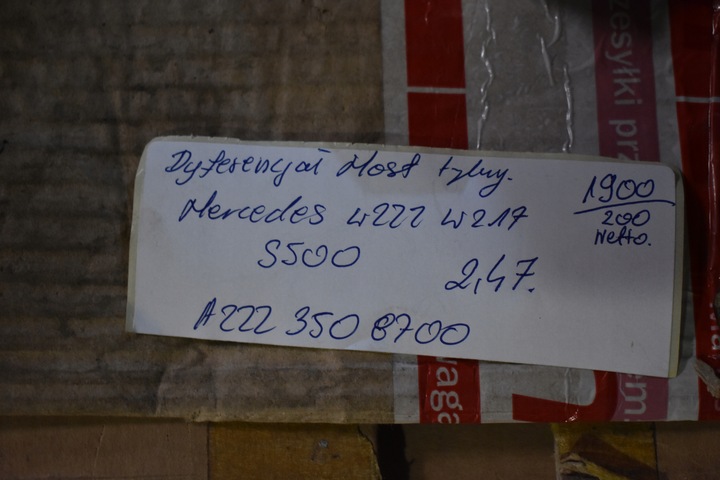 Dyferencjał Most tylny.
Mercedes W222 W217
S500
2,47.
A222 350 8700
1900
200
Netto.
zesyłki prz
waga
em